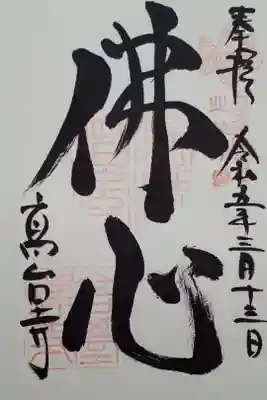 奉拝 令和五年三月十三日
佛心
高台寺